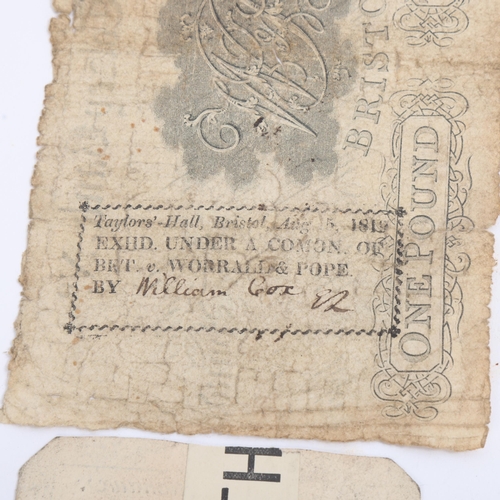 Taylors'-Hall, Bristol, Aug. 5, 1819
EXHD. UNDER A COMON. OF
BKT. v. WORRALL & POPE.
BY William Cox
BRISTO
ONE POUND